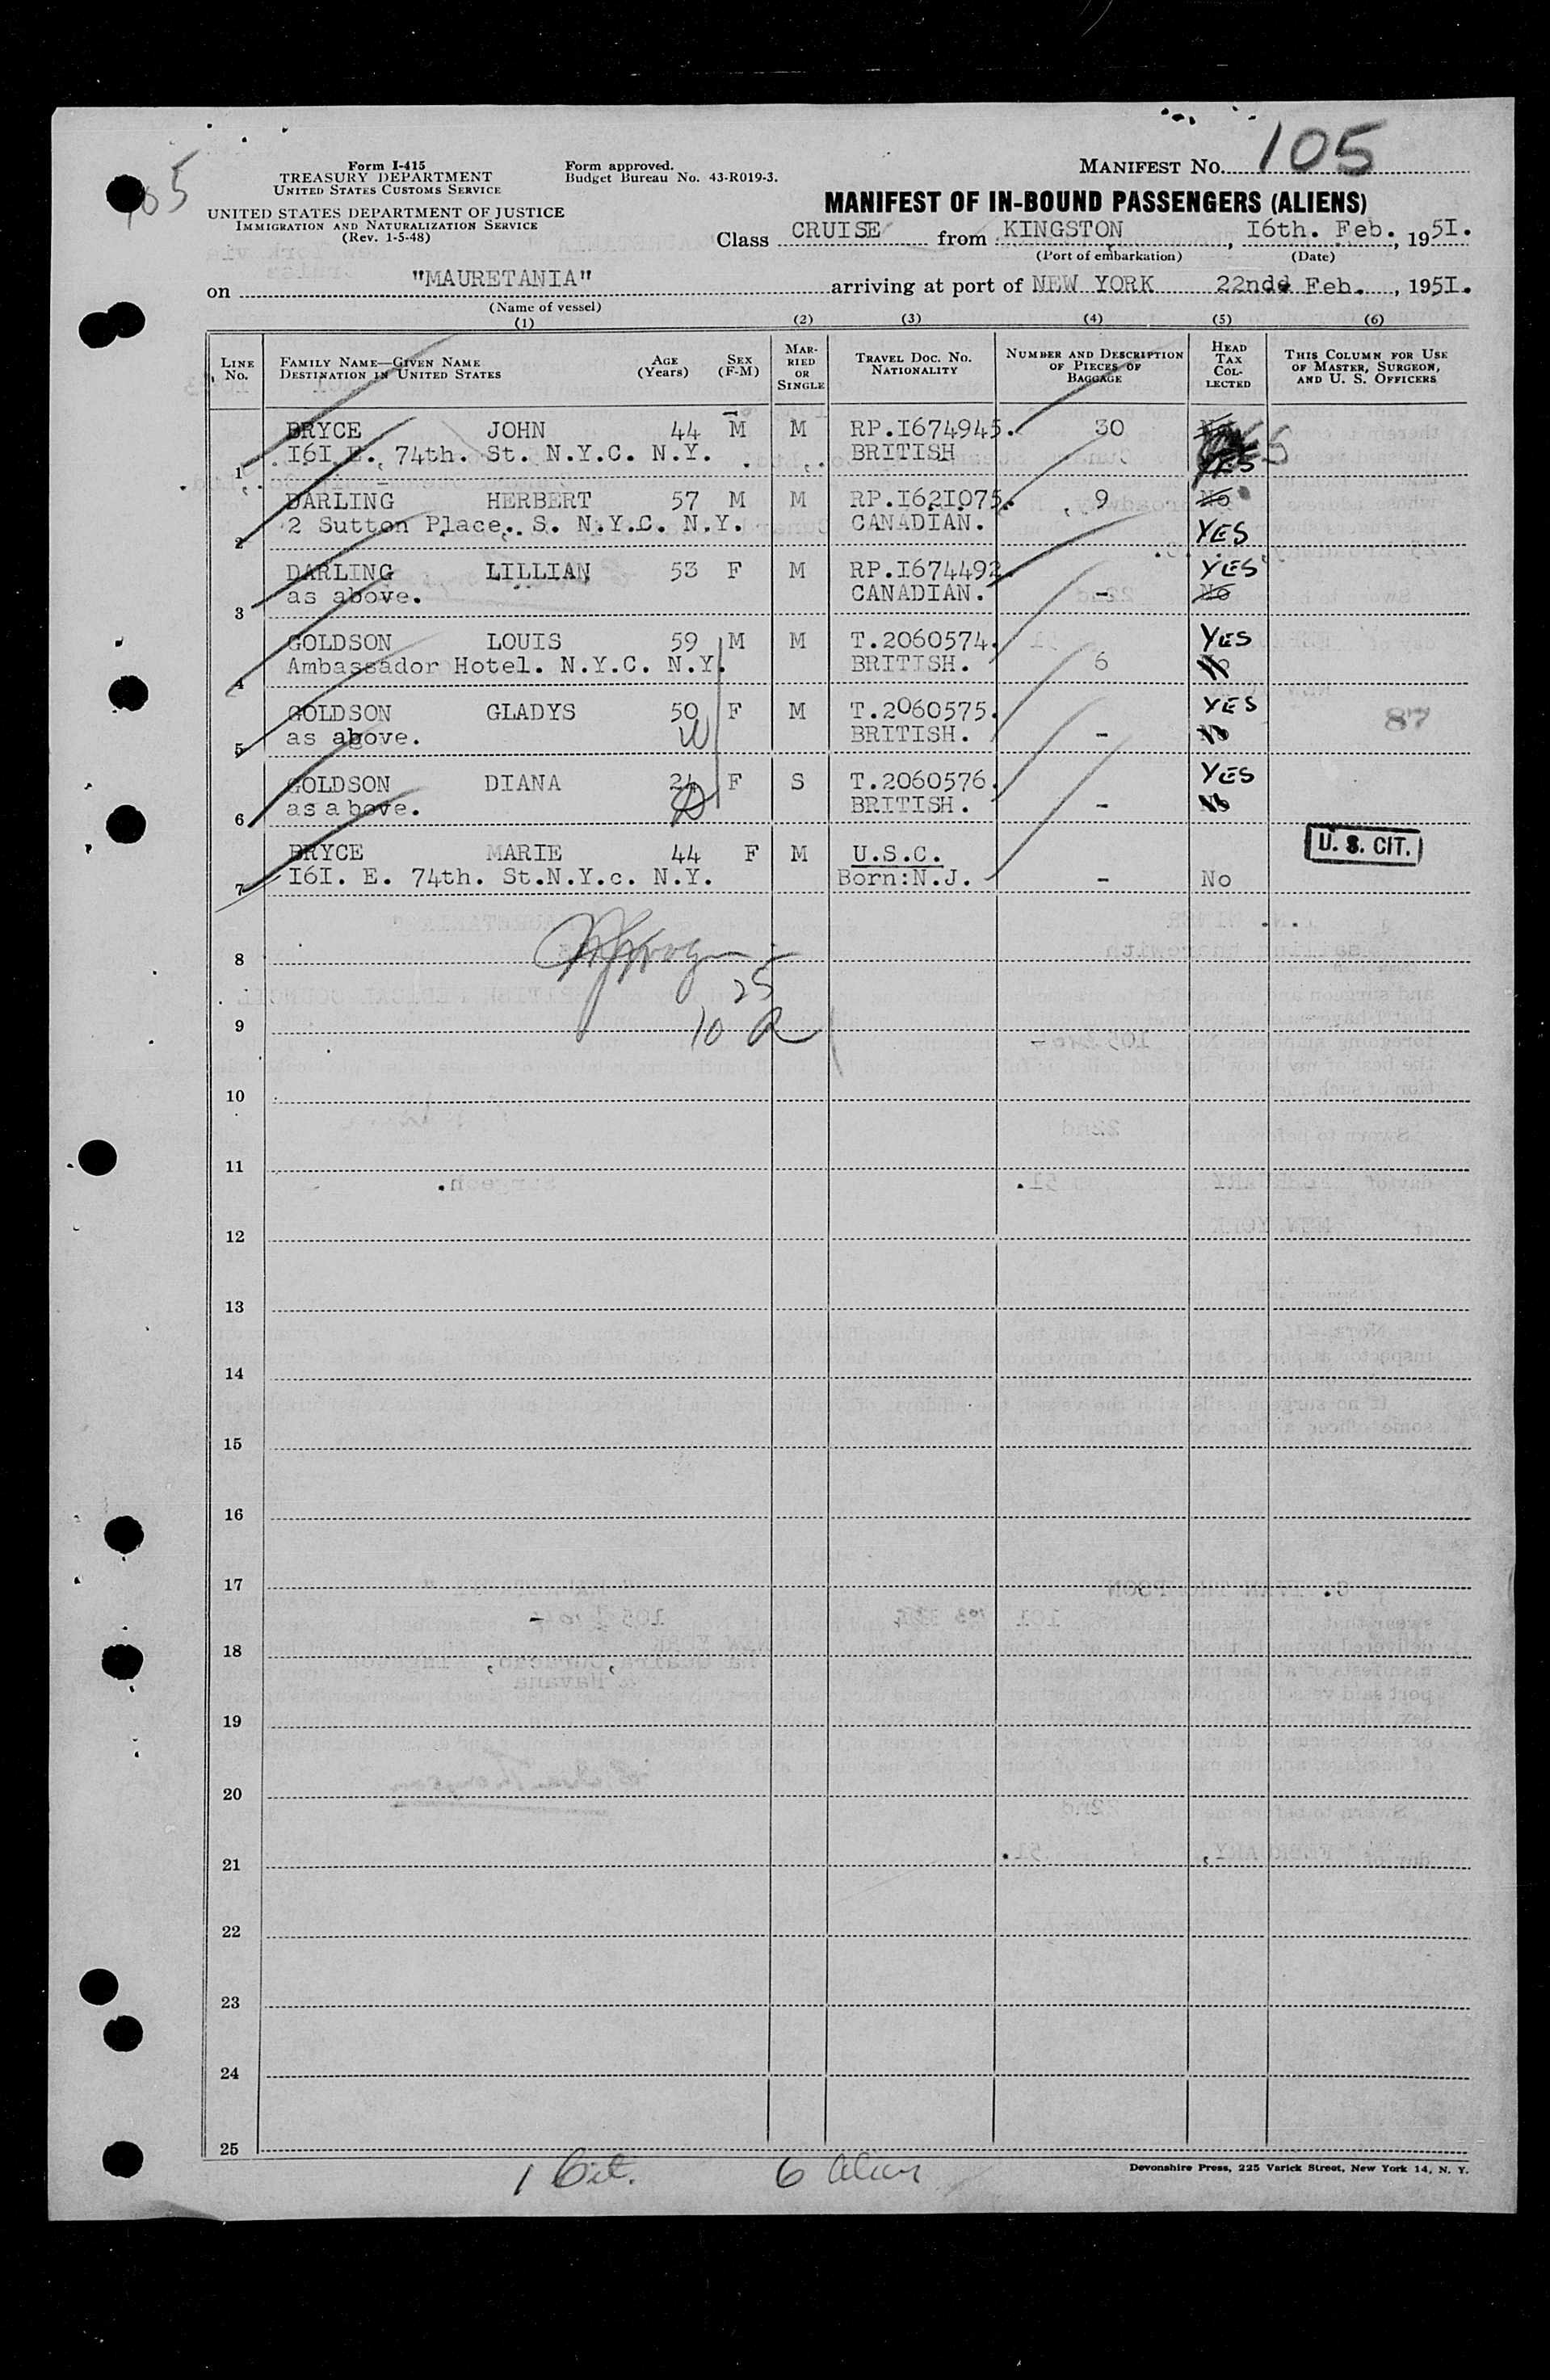 105
Form I-415
TREASURY DEPARTMENT
UNITED STATES CUSTOMS SERVICE
UNITED STATES DEPARTMENT OF JUSTICE
IMMIGRATION AND NATURALIZATION SERVICE
(Rev. 1-5-48)
Form approved.
Budget Bureau No. 43-R019-3.
MANIFEST No. 105
MANIFEST OF IN-BOUND PASSENGERS (ALIENS)
Class CRUISE from KINGSTON, I6th. Feb., 195I.
(Port of embarkation) (Date)
on "MAURETANIA" arriving at port of NEW YORK 22nd Feb., 195I.
(Name of vessel)
(1) (2) (3) (4) (5) (6)
LINE No.
FAMILY NAME—GIVEN NAME
DESTINATION IN UNITED STATES
AGE (Years)
SEX (F-M)
MARRIED OR SINGLE
TRAVEL DOC. NO.
NATIONALITY
NUMBER AND DESCRIPTION OF PIECES OF BAGGAGE
HEAD TAX COLLECTED
THIS COLUMN FOR USE OF MASTER, SURGEON, AND U. S. OFFICERS
BRYCE JOHN 44 M M RP.I674945. 30
1 I6I E. 74th. St. N.Y.C. N.Y. BRITISH YES
DARLING HERBERT 57 M M RP.I62I075. 9 No
2 2 Sutton Place. S. N.Y.C. N.Y. CANADIAN. YES
DARLING LILLIAN 53 F M RP.I674492. YES
3 as above. CANADIAN. - No
GOLDSON LOUIS 59 M M T.2060574. YES
4 Ambassador Hotel. N.Y.C. N.Y. BRITISH. 6 No
GOLDSON GLADYS 50 F M T.2060575. YES 87
5 as above. BRITISH. - No
GOLDSON DIANA 24 F S T.2060576. YES
6 as above. BRITISH. - No
BRYCE MARIE 44 F M U.S.C. U. S. CIT.
7 I6I. E. 74th. St.N.Y.c. N.Y. Born:N.J. - No
8
25
9 10 a
10
11
12
13
14
15
16
17
18
19
20
21
22
23
24
25
1 Cit. 6 Alien
Devonshire Press, 225 Varick Street, New York 14, N. Y.